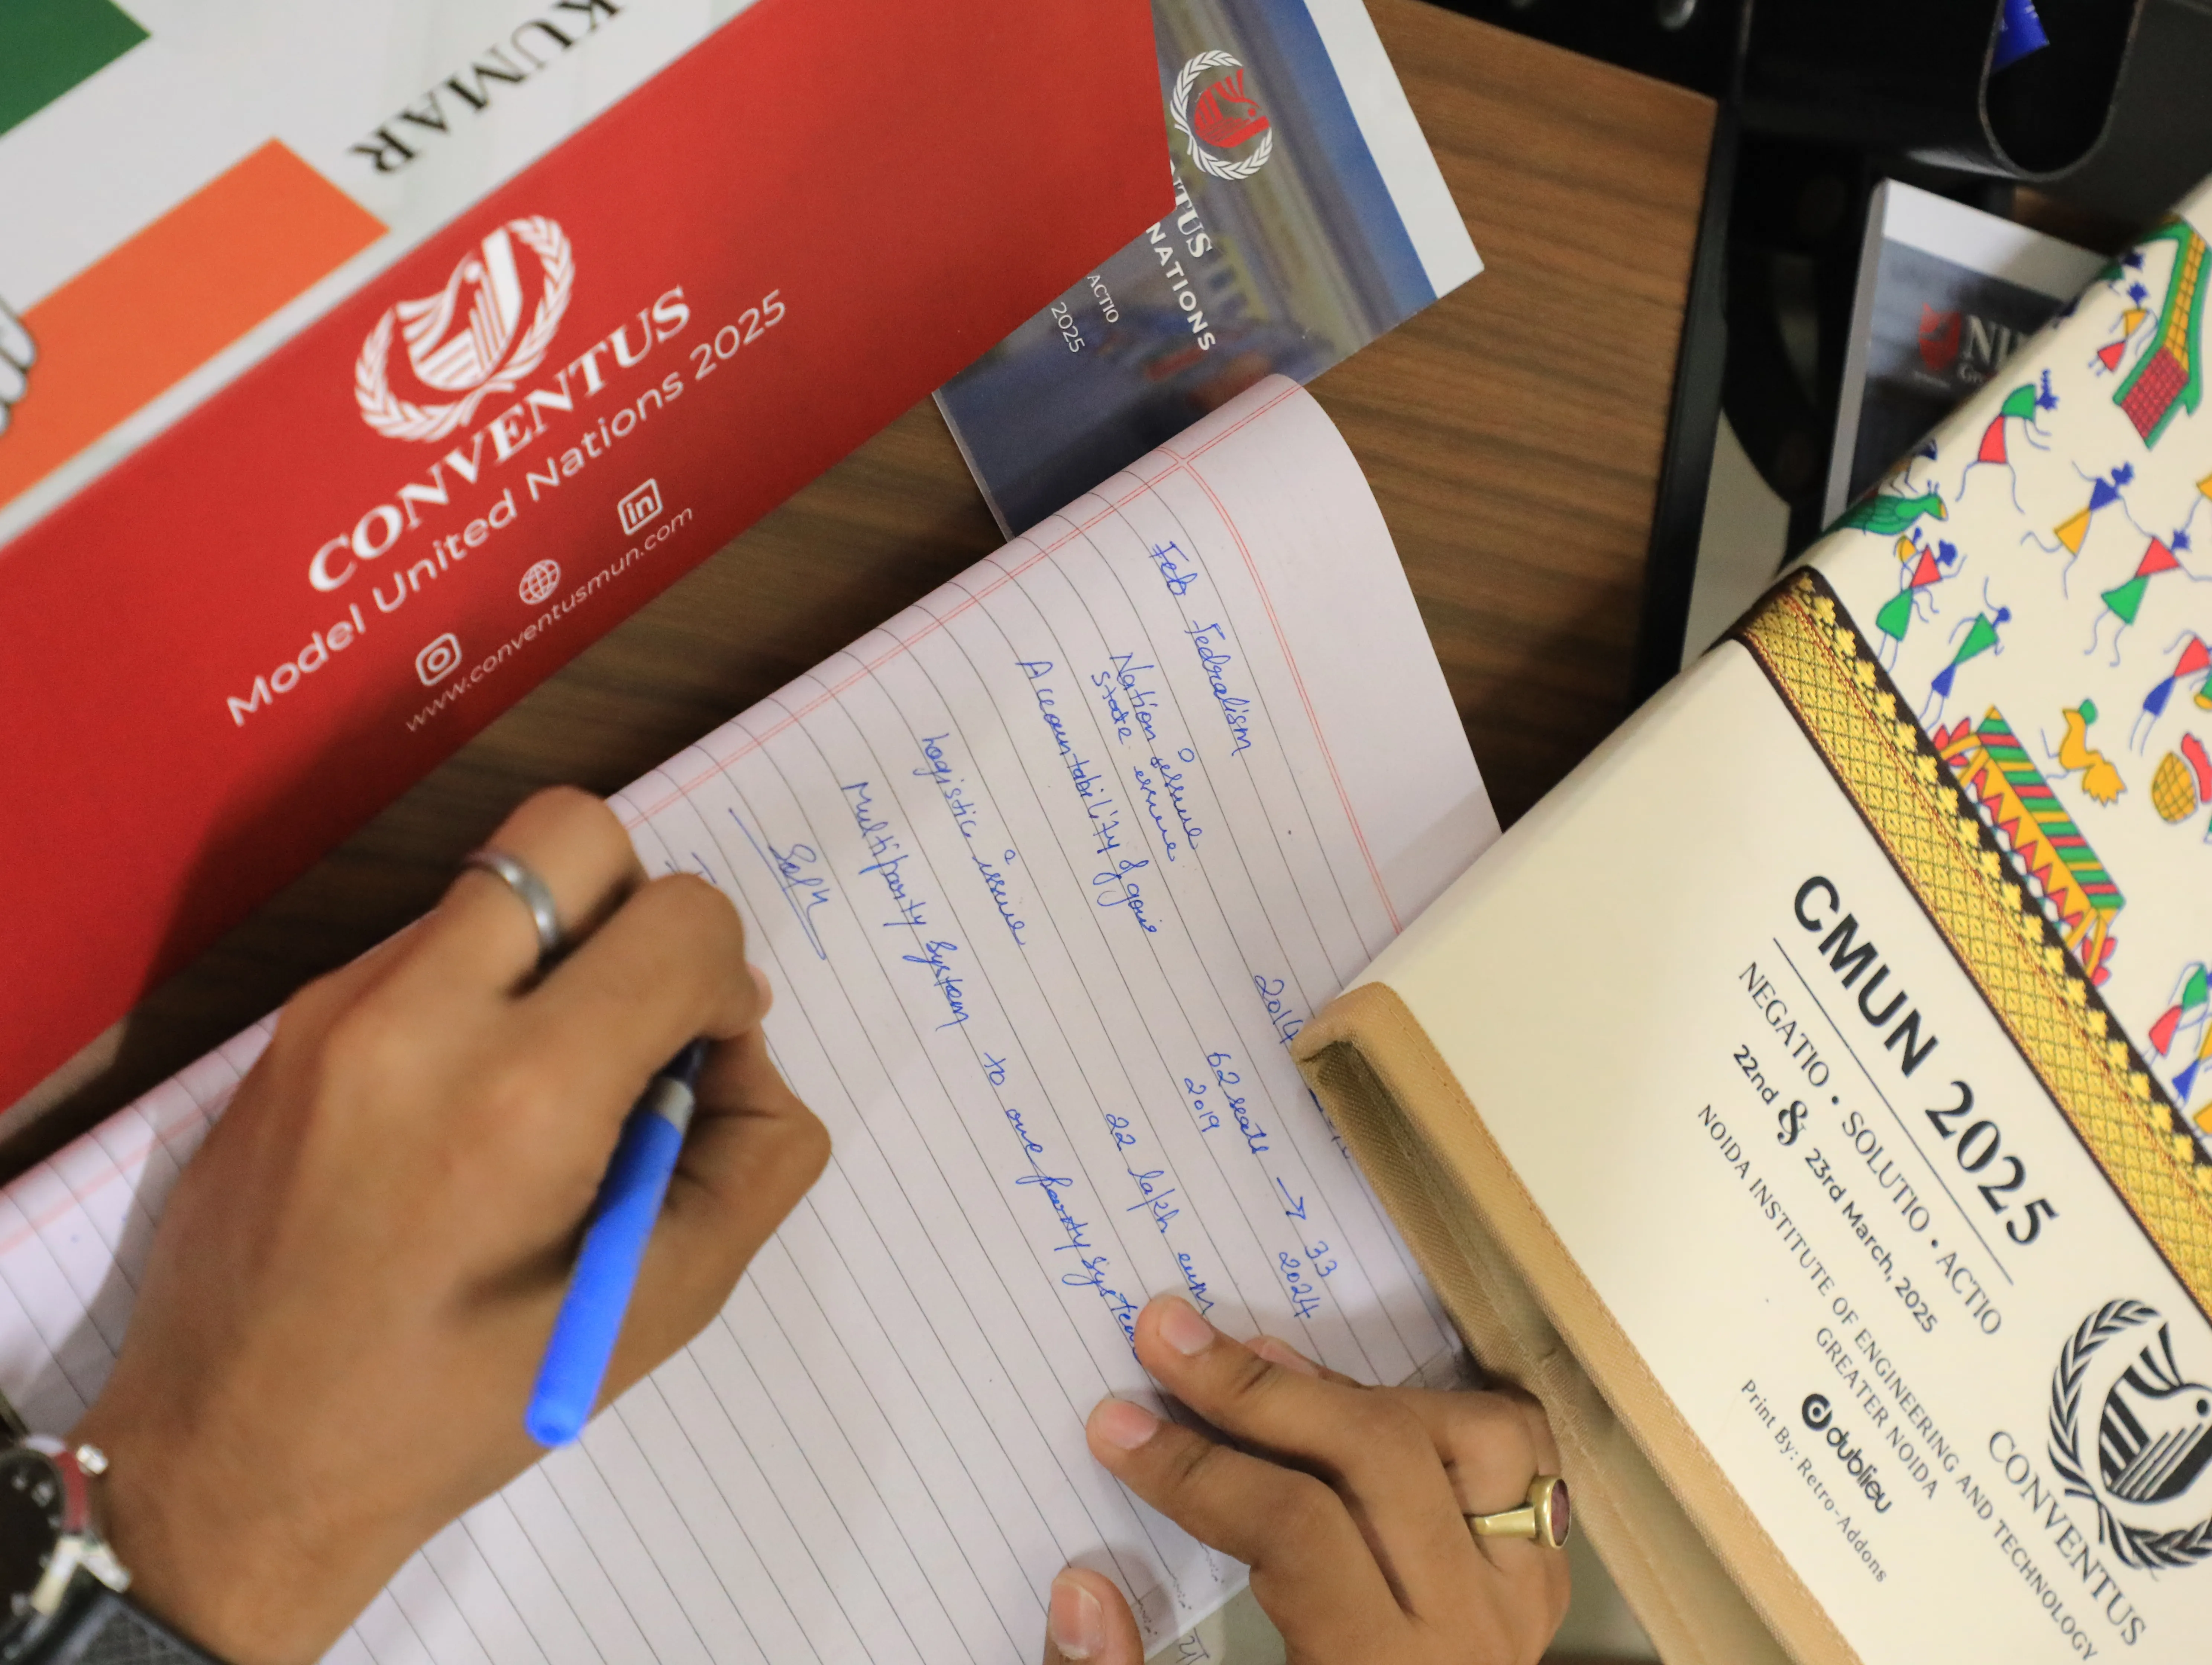 KUMAR
CONVENTUS
Model United Nations 2025
www.conventusmun.com
in
NTUS
NATIONS
ACTIO
2025
Feb Fedralism
Nation issue
State issue
Accountability of
Logistic issue
Multiparty system to one party system
2014
62 seats → 33
2019 2024
22 lakh evm
CMUN 2025
NEGATIO • SOLUTIO • ACTIO
22nd & 23rd March, 2025
NOIDA INSTITUTE OF ENGINEERING AND TECHNOLOGY
GREATER NOIDA
dublieu
Print By: Retro-Addons
CONVENTUS